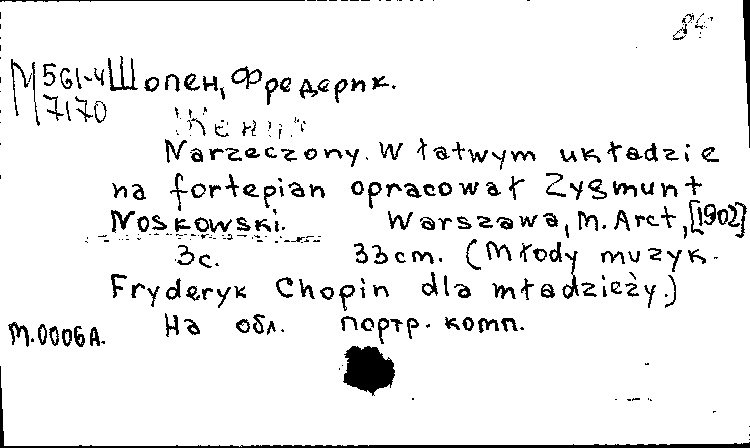 84
М 561-4 Шопен, Фредерик.
7170
Жених
Narzeczony. W łatwym układzie
na fortepian opracował Zygmunt
Noskowski. Warszawa, M. Arct, [1902]
3с. 33cm. (Młody muzyk.
Fryderyk Chopin dla młodzieży.)
М.0006А. На обл. портр. комп.